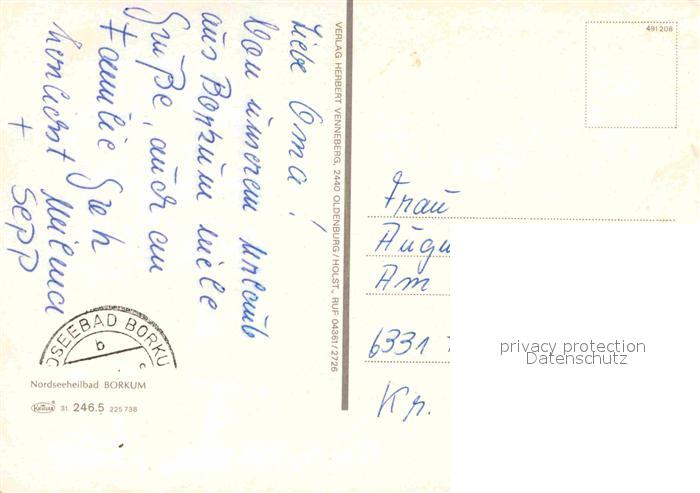 Liebe Oma!
Von unserem Urlaub
aus Borkum viele
Grüße, auch an
Familie Groh
herlichst
+ Sepp
VERLAG HERBERT VENNEBERG, 2440 OLDENBURG/HOLST., RUF 04361/2726
491208
Frau
Augu
Am
6331
Kr.
privacy protection
Datenschutz
DSEEBAD BORKU
b
Nordseeheilbad BORKUM
Krüger 31 246.5 225738